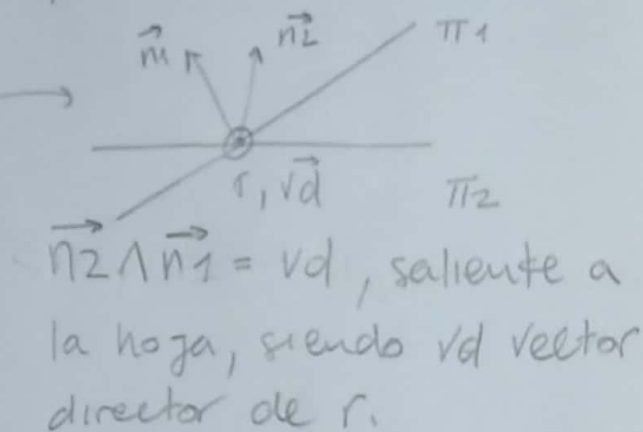 n⃗1 n⃗2 π1
r, v⃗d π2
n⃗2 ∧ n⃗1 = vd, saliente a
la hoja, siendo vd vector
director de r.